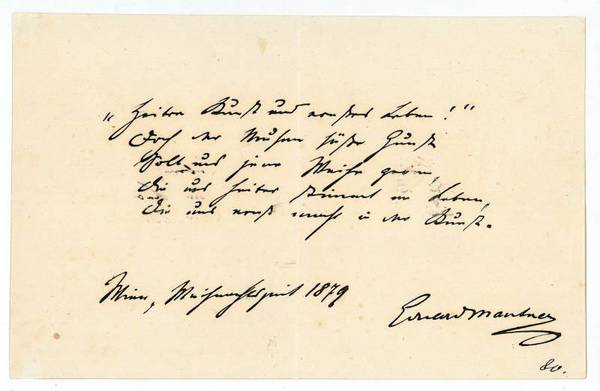 „Heitre Kunst und ernstes Leben!“
Doch der Musen süße Gunst
Soll uns jene Weihe geben,
Die uns heiter stimmt im Leben,
Die uns ernst macht in der Kunst.
Wien, Weihnachtszeit 1879
Eduard Mautner
80.